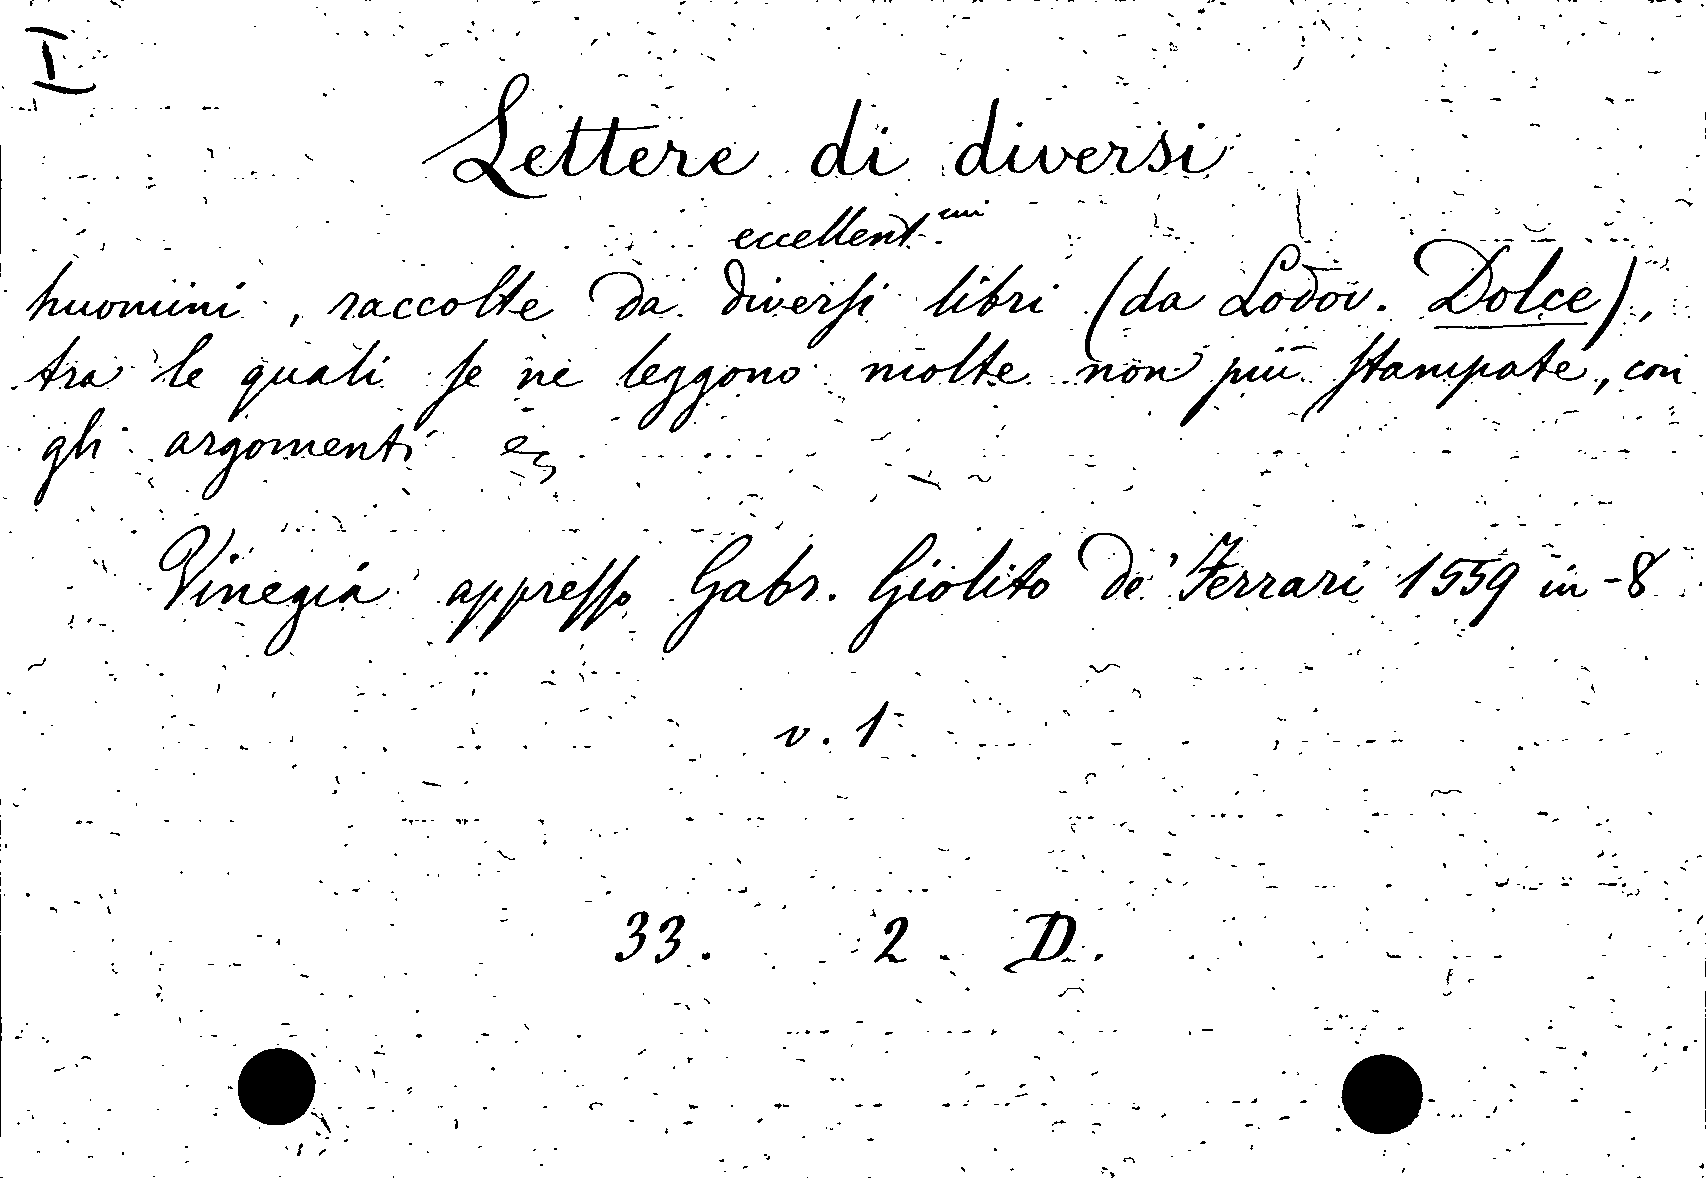 I
Lettere di diversi
eccellent.mi
huomini, raccolte da diversi libri (da Lodov. Dolce),
tra le quali se ne leggono molte non più stampate, con
gli argomenti ec
Vinegia appresso Gabr. Giolito de' Ferrari 1559 in-8
v. 1
33. 2. D.